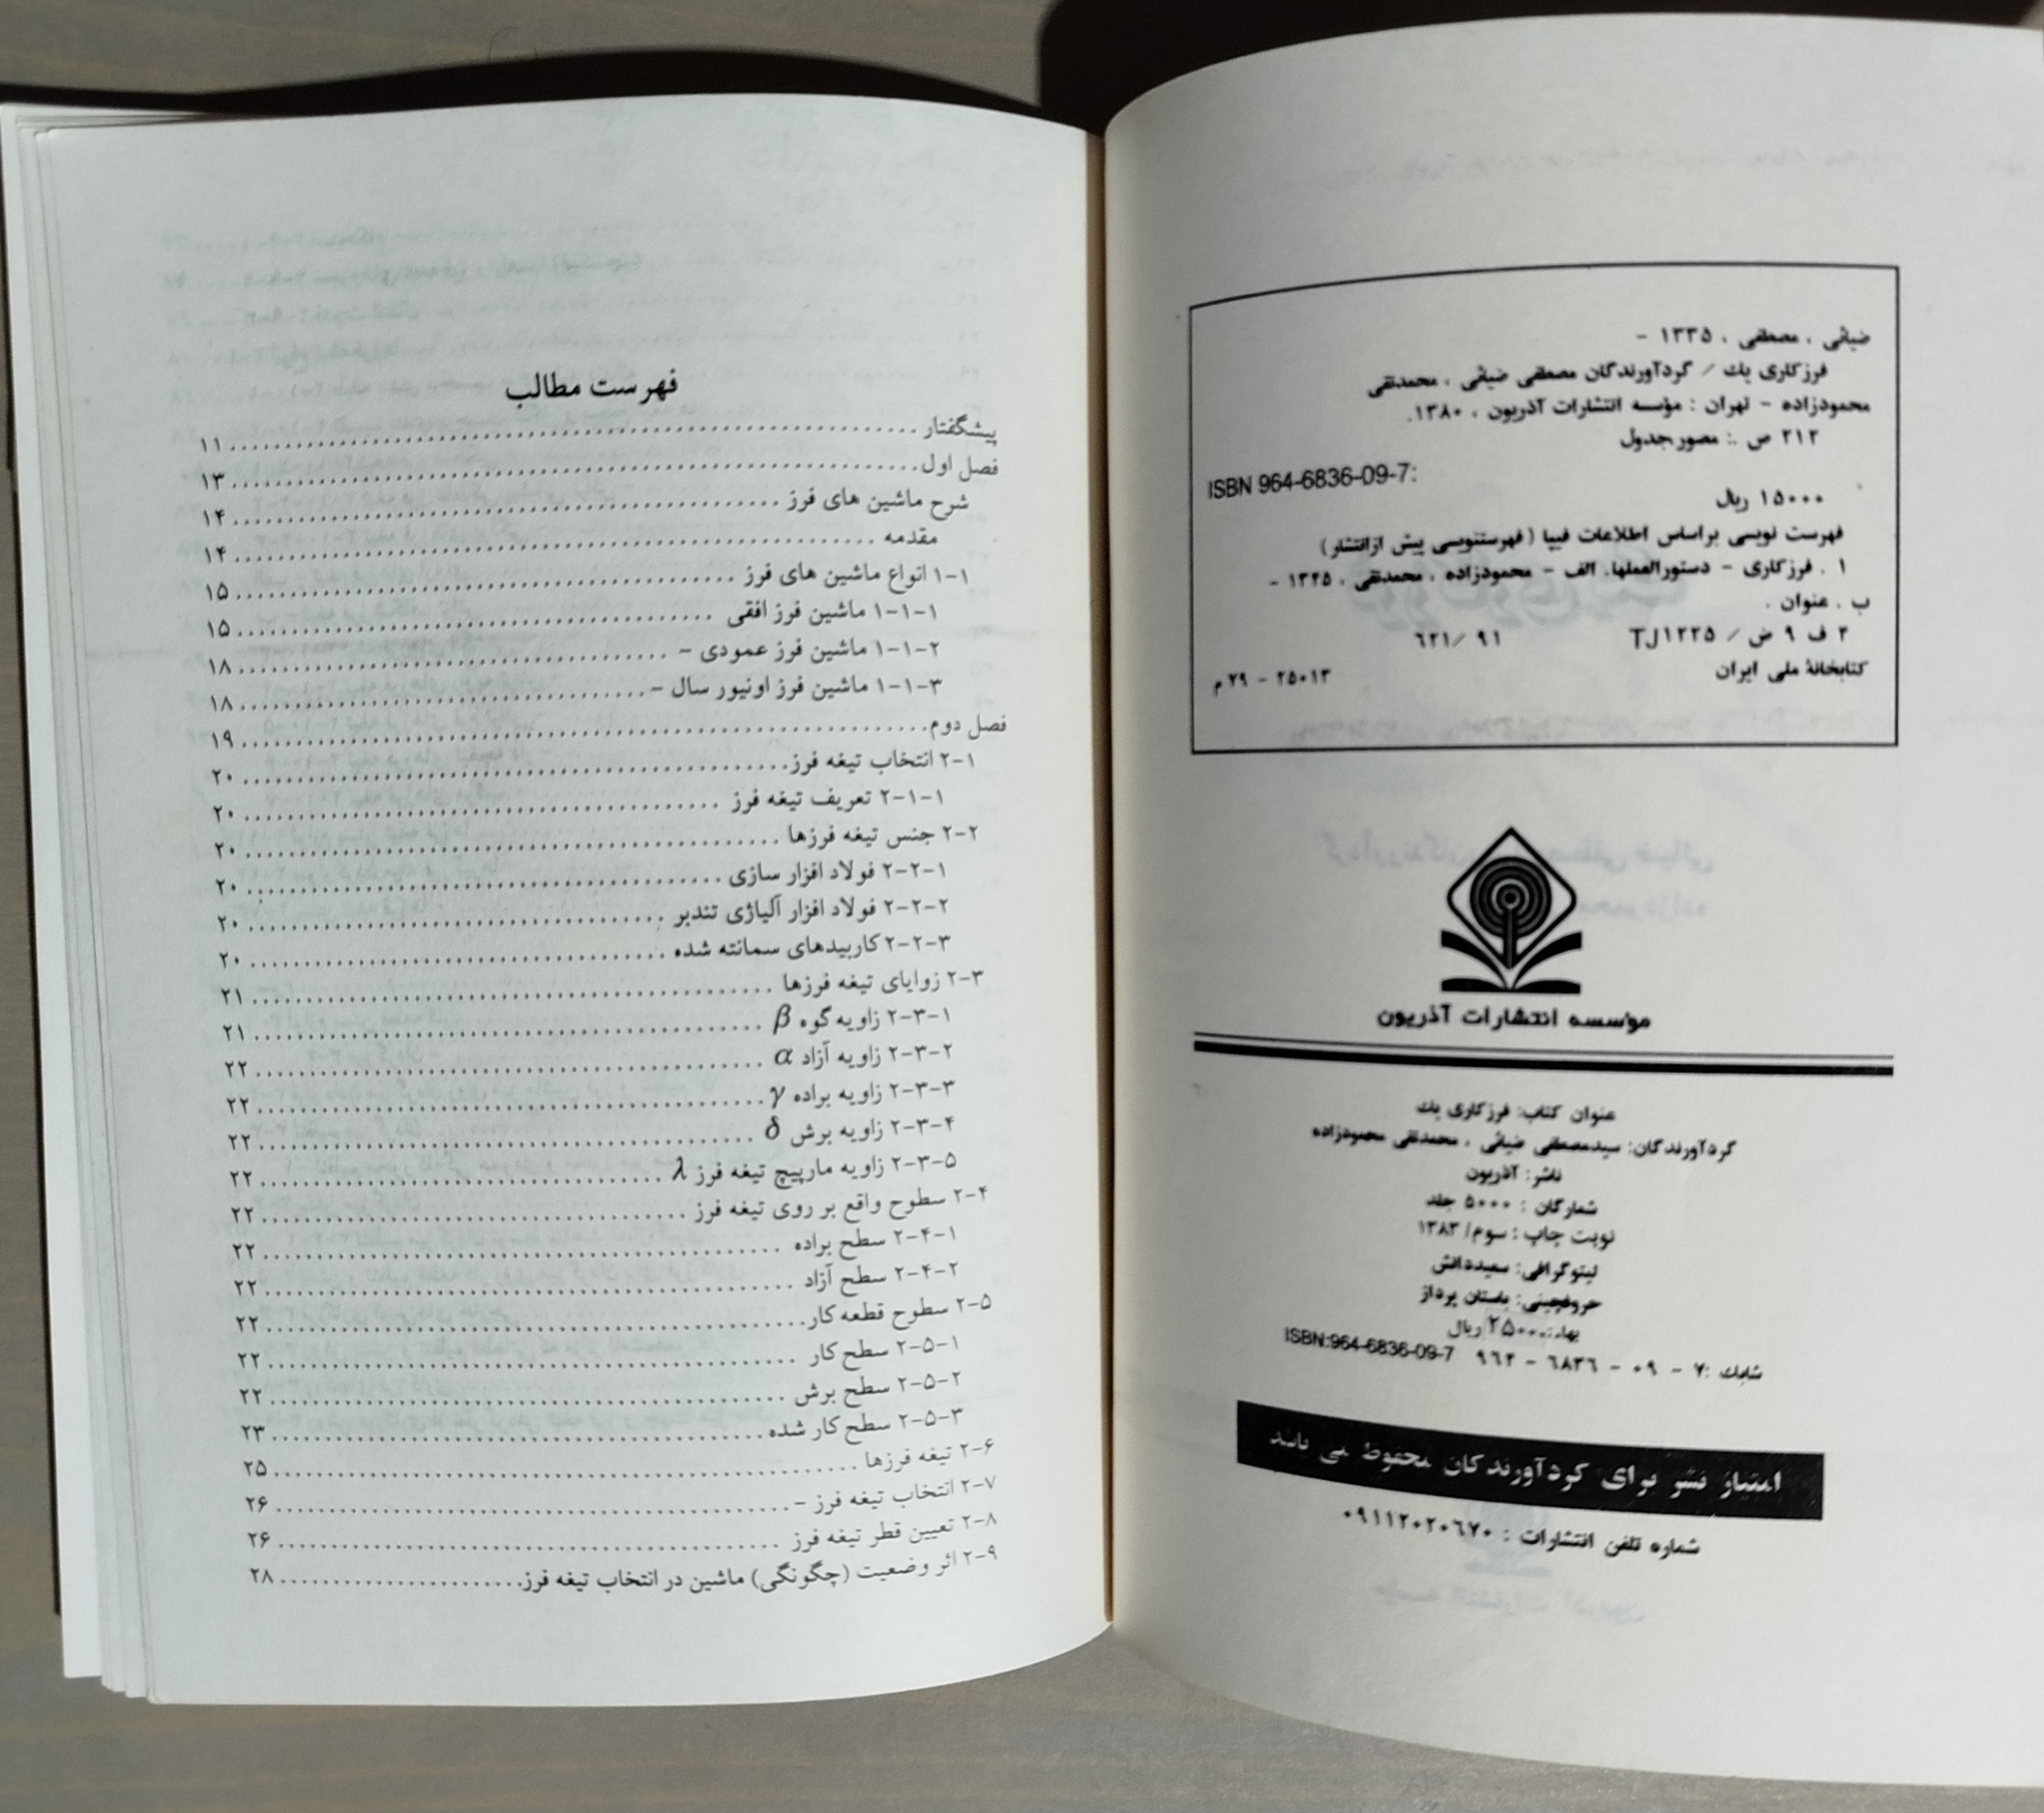 ضیائی ، مصطفی ، ۱۳۳۵ -
فرزکاری یك / گردآورندگان مصطفی ضیائی ، محمدتقی
محمودزاده - تهران : مؤسسه انتشارات آذریون ، ۱۳۸۰.
۲۱۲ ص .: مصور،جدول
ISBN 964-6836-09-7:
۱۵۰۰۰ ریال
فهرست نویسی براساس اطلاعات فیپا (فهرستنویسی پیش ازانتشار)
۱ . فرزکاری - دستورالعملها. الف - محمودزاده ، محمدتقی ، ۱۳۲۵ -
ب . عنوان .
۴ ف ۹ ض / TJ۱۲۲۵ ۶۲۱/ ۹۱
کتابخانهٔ ملی ایران ۲۵۰۱۳ - ۷۹ م
موسسه انتشارات آذریون
عنوان کتاب: فرزکاری یك
گردآورندگان: سیدمصطفی ضیائی ، محمدتقی محمودزاده
ناشر: آذریون
شمارگان : ۵۰۰۰ جلد
نوبت چاپ : سوم/ ۱۳۸۳
لیتوگرافی: سعیددانش
حروفچینی: باستان پرداز
بهاء: ۲۵۰۰۰ ریال
شابك :۷ - ۰۹ - ۶۸۳۶ - ۹۶۴ ISBN:964-6836-09-7
امتیاز نشر برای گردآورندگان محفوظ می باشد
شماره تلفن انتشارات : ۰۹۱۱۲۰۲۰۶۷۰
فهرست مطالب
پیشگفتار ........ ۱۱
فصل اول ........ ۱۳
شرح ماشین های فرز ........ ۱۴
مقدمه ........ ۱۴
۱-۱ انواع ماشین های فرز ........ ۱۵
۱-۱-۱ ماشین فرز افقی ........ ۱۵
۱-۱-۲ ماشین فرز عمودی - ........ ۱۸
۱-۱-۳ ماشین فرز اونیور سال - ........ ۱۸
فصل دوم ........ ۱۹
۲-۱ انتخاب تیغه فرز ........ ۲۰
۲-۱-۱ تعریف تیغه فرز ........ ۲۰
۲-۲ جنس تیغه فرزها ........ ۲۰
۲-۲-۱ فولاد افزار سازی ........ ۲۰
۲-۲-۲ فولاد افزار آلیاژی تندبر ........ ۲۰
۲-۲-۳ کاربیدهای سمانته شده ........ ۲۰
۲-۳ زوایای تیغه فرزها ........ ۲۱
۲-۳-۱ زاویه گوه β ........ ۲۱
۲-۳-۲ زاویه آزاد α ........ ۲۲
۲-۳-۳ زاویه براده γ ........ ۲۲
۲-۳-۴ زاویه برش δ ........ ۲۲
۲-۳-۵ زاویه مارپیچ تیغه فرز λ ........ ۲۲
۲-۴ سطوح واقع بر روی تیغه فرز ........ ۲۲
۲-۴-۱ سطح براده ........ ۲۲
۲-۴-۲ سطح آزاد ........ ۲۲
۲-۵ سطوح قطعه کار ........ ۲۲
۲-۵-۱ سطح کار ........ ۲۲
۲-۵-۲ سطح برش ........ ۲۲
۲-۵-۳ سطح کار شده ........ ۲۳
۲-۶ تیغه فرزها ........ ۲۵
۲-۷ انتخاب تیغه فرز - ........ ۲۶
۲-۸ تعیین قطر تیغه فرز ........ ۲۶
۲-۹ اثر وضعیت (چگونگی) ماشین در انتخاب تیغه فرز ........ ۲۸